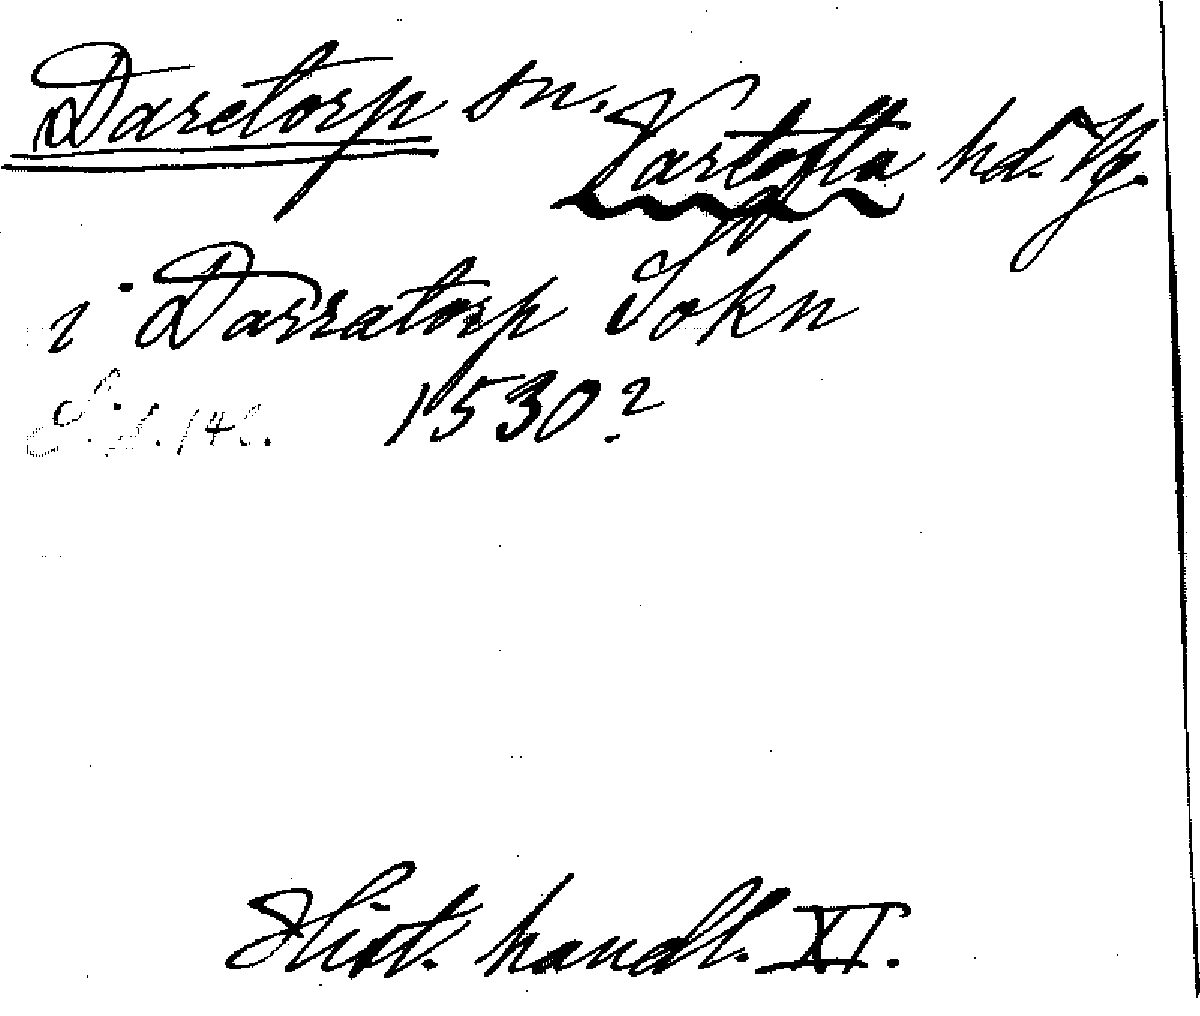 Daretorp sn.
Vartofta hd. Vg.
i Darratorp Sokn
Sid. 142. 1530?
Hist. handl. XI.